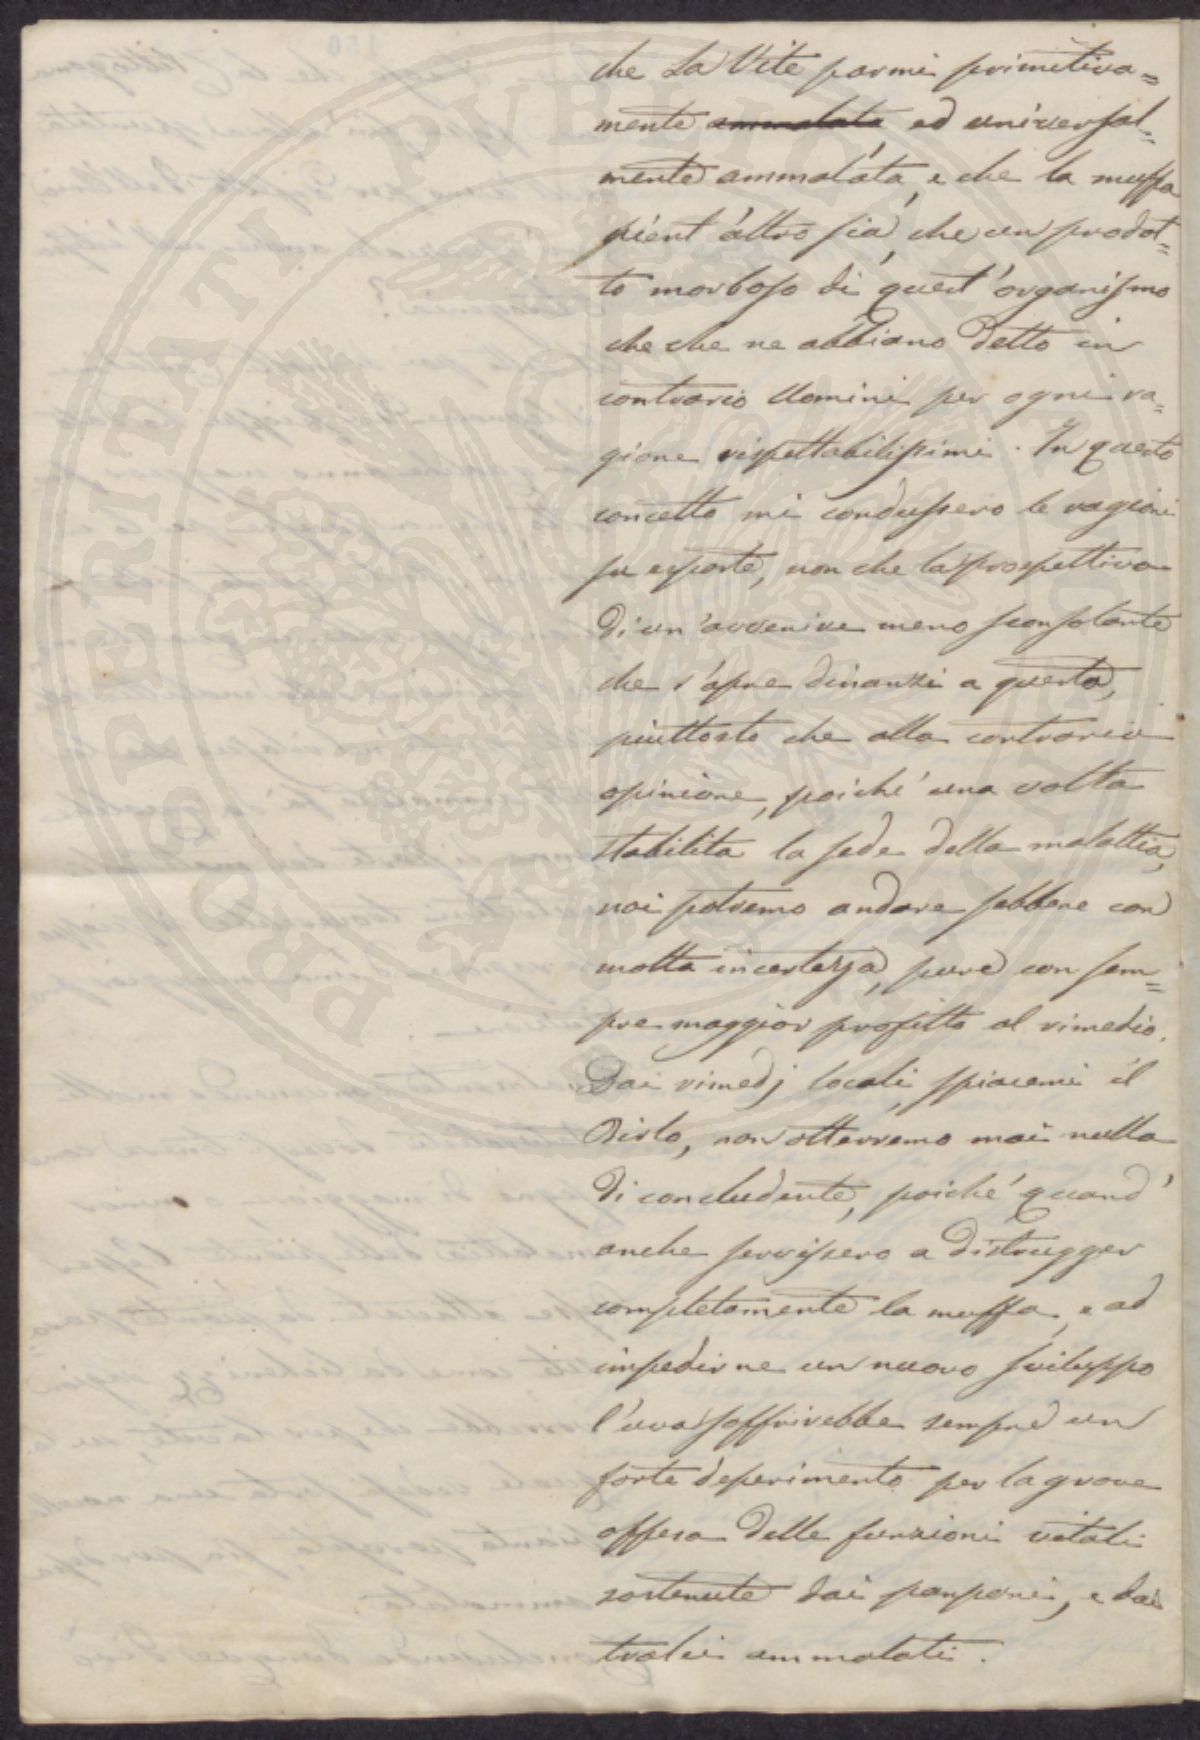 che la Vite parmi primitiva=
mente ammalata ed universal=
mente ammalata, e che la muffa
nient'altro sia, che un prodot=
to morboso di quest'organismo
che che ne abbiano detto in
contrario Uomini per ogni ra=
gione rispettabilissimi. In questo
concetto mi condussero le ragioni
su esposte, non che la prospettiva
di un'avvenire meno sconsolante
che s'apre dinanzi a questa,
piuttosto che alla contraria
opinione, poiché una volta
stabilita la sede della malattia,
noi potremo andare sebbene con
molta incertezza, pure con sem=
pre maggior profitto al rimedio.
Dai rimedj locali, spiacemi il
dirlo, non otterremo mai nulla
di concludente, poiché quand'
anche servissero a distrugger
completamente la muffa, e ad
impedirne un nuovo sviluppo
l'uva soffrirebbe sempre un
forte deperimento per la grave
offesa delle funzioni vitali
sostenute dai pampani, e dai
tralci ammalati.
PROSPERITATI PUBLICAE